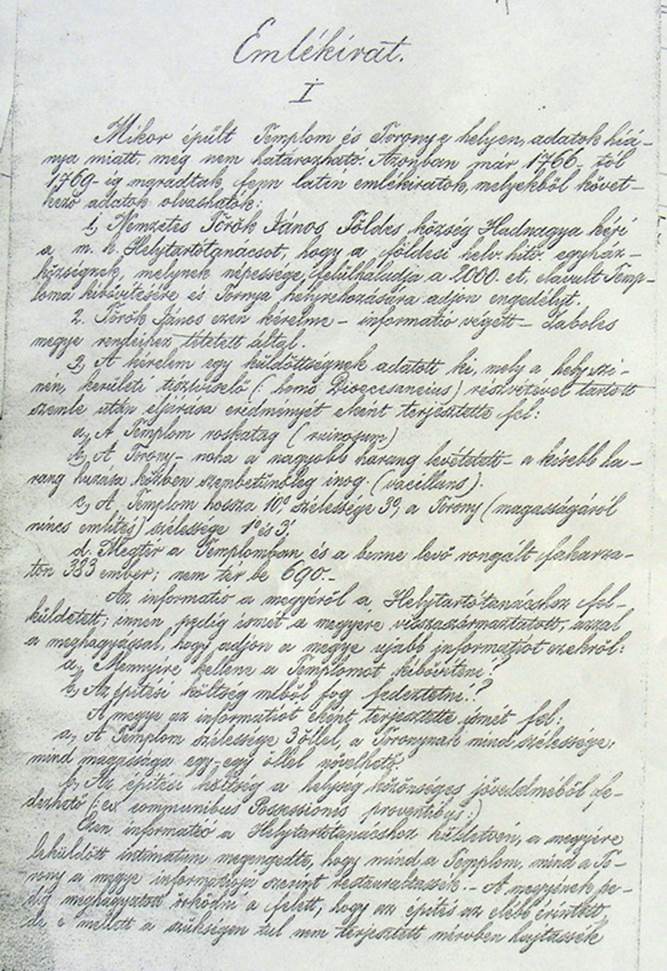 Emlékirat.
I
Mikor épült Templom és Torony e helyen, adatok hiá-
nya miatt, meg nem határozható. Azonban már 1766-tól
1769-ig maradtak fenn latin emlékiratok, melyekből követ-
kező adatok olvashatók:
1, Nemzetes Török János Földes község Hadnagya kéri
a m. k. Helytartótanácsot, hogy a földesi helv. hitv. egyház-
községnek, melynek népessége felülhaladja a 2000.et, elavult Temp-
loma kibővítésére és Tornya helyrehozására adjon engedélyt.
2. Török János ezen kérelme – informatio végett – Zabolcs
megye rendeihez tétetett által.
3, A kérelem egy küldöttségnek adatott ki, mely a hely szi-
nén, kerületi tisztviselő (: homo Dioecesaneius) részvétével tartott
szemle után eljárása eredményét eként terjesztette fel:
a, A Templom roskatag (ruinosum)
b, A Torony – noha a nagyobb harang levétetett – a kisebb ha-
rang húzása közben szembetünőleg inog. (vacillans).
c, A Templom hossza 10° szélessége 3°, a Torony (magasságáról
nincs említés) szélessége 1° és 3'.
d. Megfér a Templomban és a benne levő rongált fakarza-
ton 333 ember; nem fér be 690.-
Az informatio a megyéről a Helytartótanácshoz fel-
küldetett; innen pedig ismét a megyére visszaszármaztatott, azzal
a meghagyással, hogy adjon a megye ujabb informatiot ezekről:
a, Mennyire kellene a Templomot kibővíteni?
b, Az építési költség miből fog fedeztetni?
A megye az informatiót ekként terjesztette ismét fel:
a, A Templom szélessége 3 öllel, a Toronynak mind szélessége,
mind magassága egy-egy öllel növelhető.
b, Az építési költség a helység közönséges jövedelméből fe-
dezhető (: ex communibus Possessiones proventibus:)
Ezen informatió a Helytartótanácshoz küldetvén, a megyére
leküldött intimatum megengedte, hogy mind a Templom, mind a To-
rony a megye informatioja szerint restauráltassék.- A megyének pe-
dig meghagyatott őrködni a felett, hogy az építés az elébb érintett,
de e mellett a szükségen tul nem terjesztett mérvben hajtassék